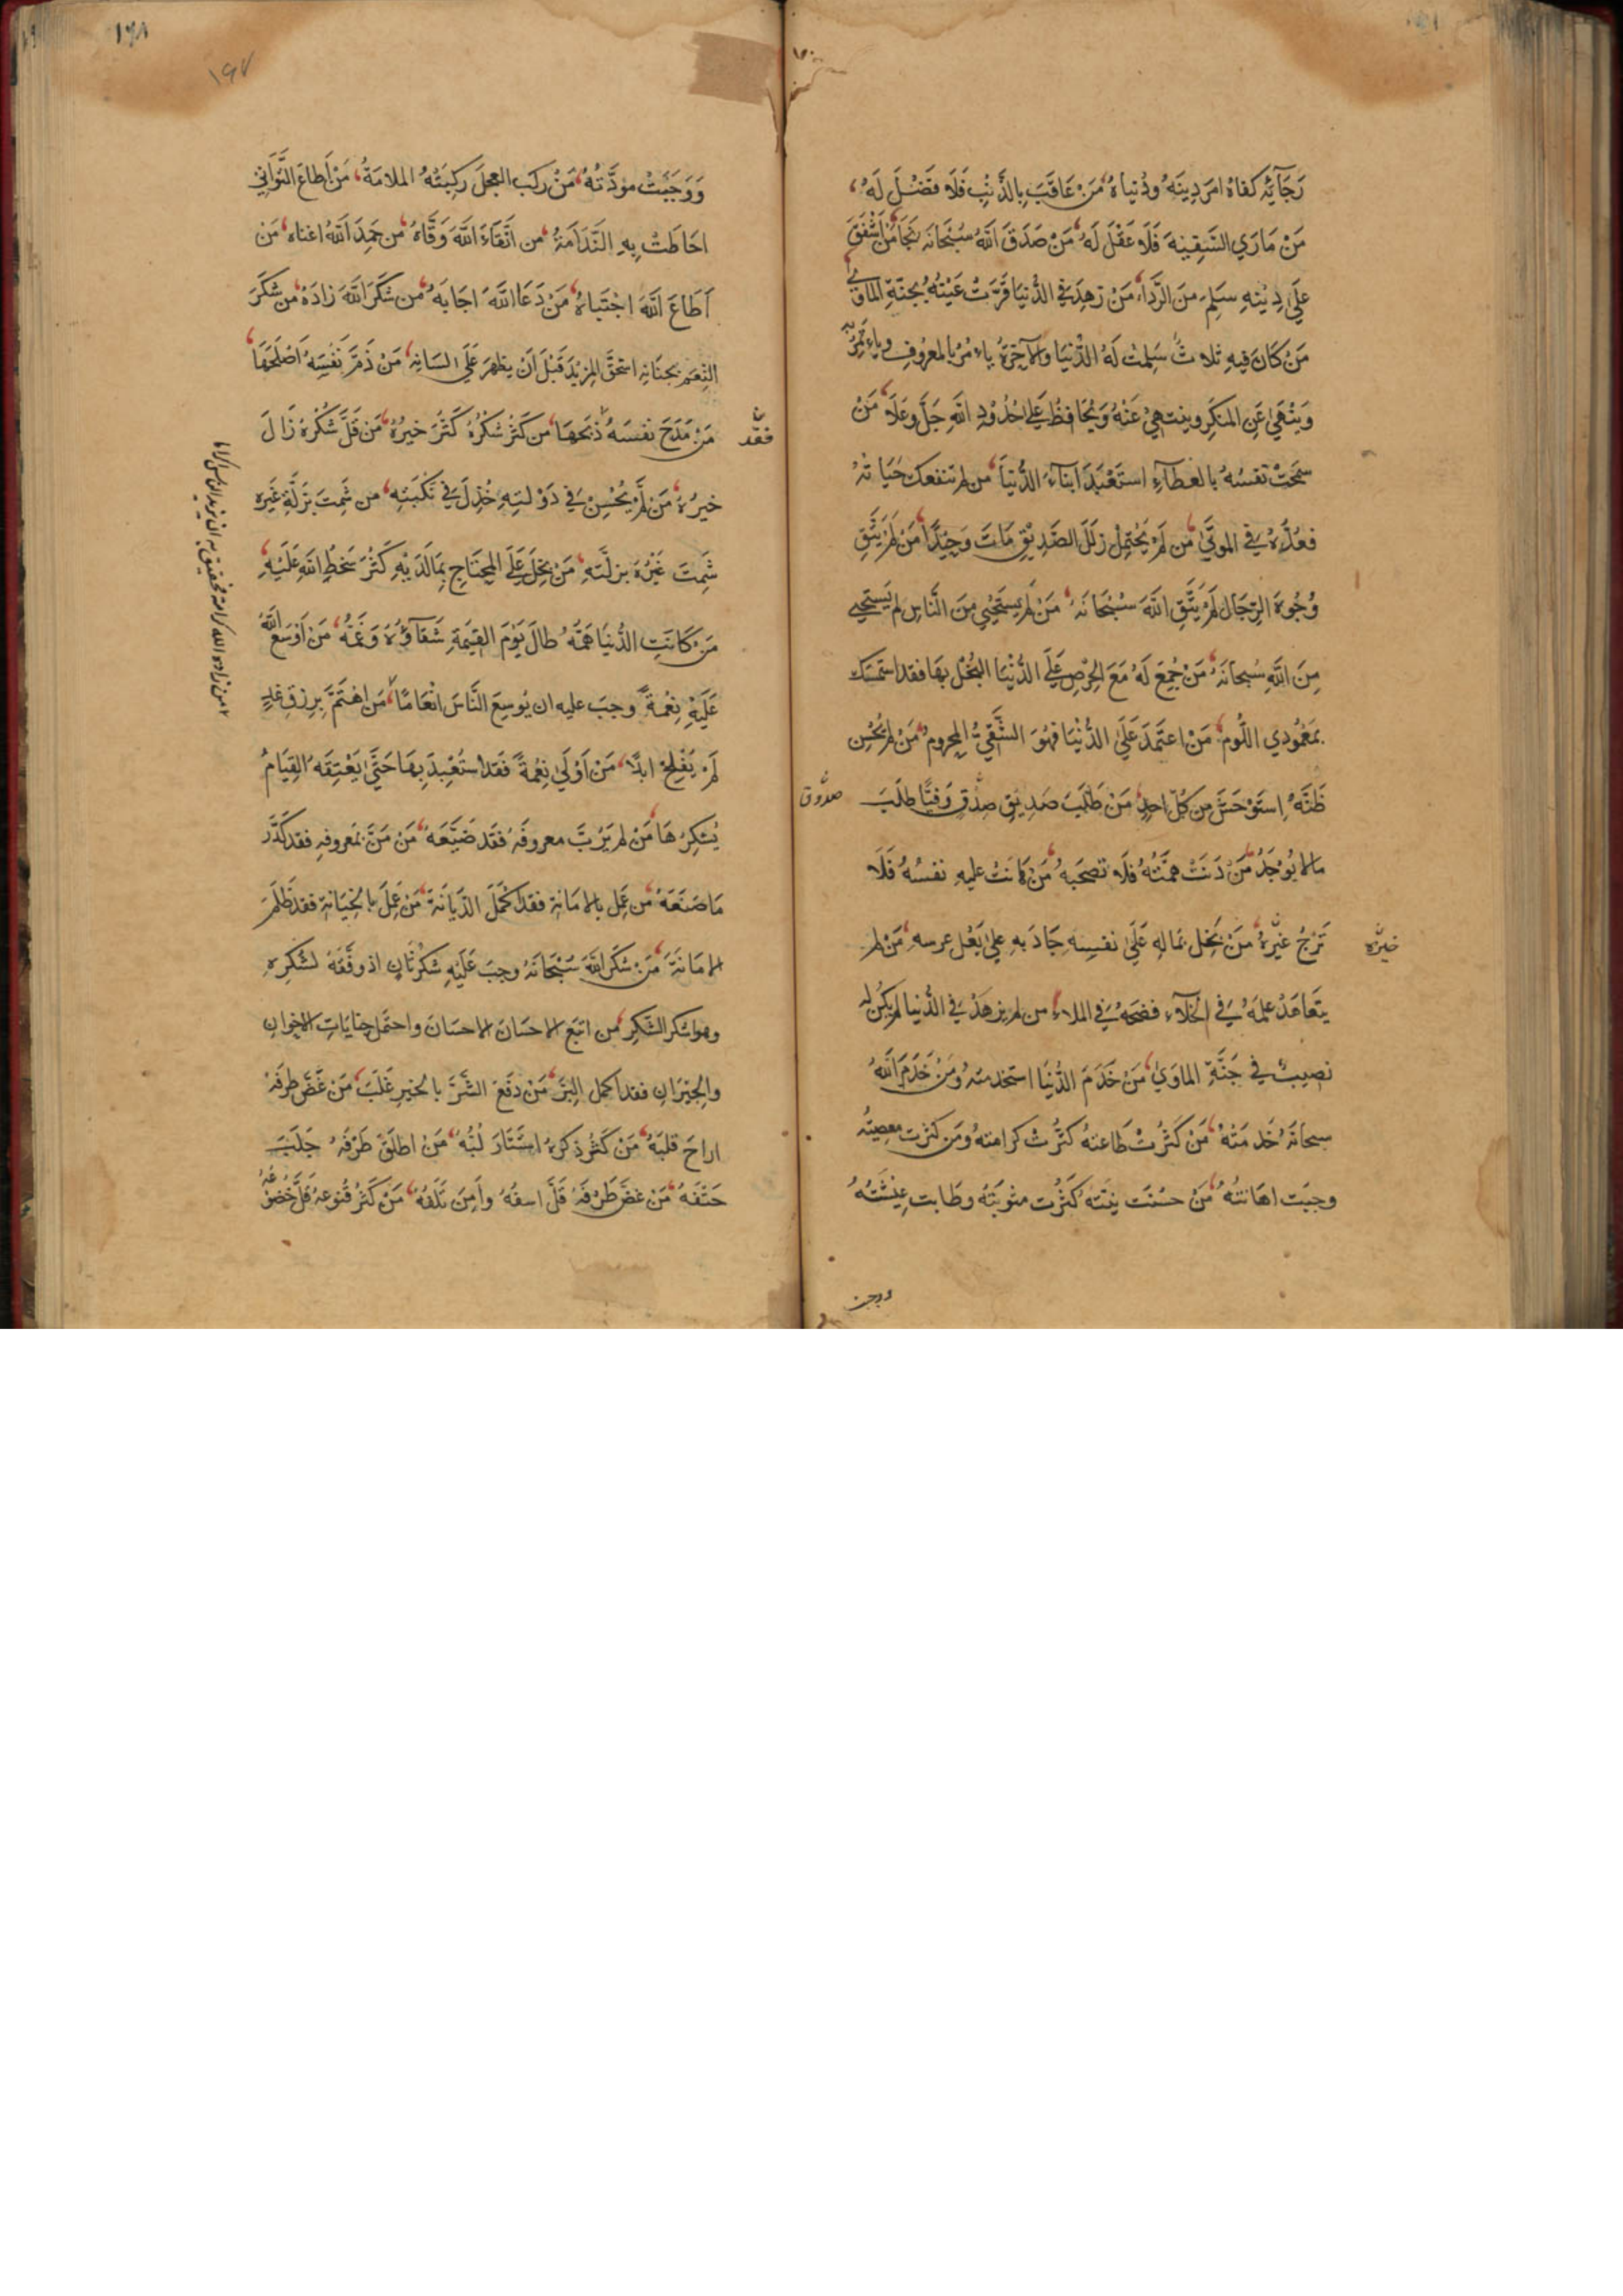 رَجَآئِهِ كفاهُ امرَ دِينَهُ ودُنياهُ، مَنْ عَاقَبَ بِالذَّنْبِ فَلَا فَضْلَ لَهُ،
مَنْ مَارَي السَّفِيْهَ فَلَا عَقْلَ لَهُ، مَنْ صَدَقَ اللَّهَ سُبْحَانَهُ نَجَا، مَنْ اَشْفَقَ
عَلَي دِيْنِهِ سَلِمَ مِنَ الرَّدَا، مَنْ زَهِدَ فِي الدُّنْيَا قَرَّتْ عَيْنُهُ بِجَنَّةِ المَاْوَي،
مَنْ كَانَ فِيهِ ثَلاثٌ سَلِمَتْ لَهُ الدُّنيَا وَالآخِرَةُ يَاءمُرُ بالمعرُوفِ وياءتَمِرُ بِهِ
وَيَنْهَي عَنِ المنكَرِ وينتهِيْ عَنْهُ وَيُحَافِظُ عَلَي حُدُوْدِ اللَّهِ جَلَّ وعَلَا، مَنْ
سَمَحَتْ نفسُهُ بالعَطَآءِ استَعْبَدَ ابْنَآءَ الدُّنيَا، مَن لم تنفعك حَيَاتُهُ
فعُدَّهُ فِي الموتَي، مَن لَمْ يَحْتَمِلْ زلَلَ الصَّدِيْقِ مَاتَ وَحِيْدًا، مَنْ لَمْ يَتَّقِ
وُجُوهَ الرِّجَالِ لَمْ يَتَّقِ اللَّهَ سُبْحَانَهُ، مَنْ لم يَسْتَحْيِي مِنَ النَّاسِ لم يَسْتَحْيِي
مِنَ اللَّهِ سُبحَانَهُ، مَنْ جُمِعَ لَهُ مَعَ الحِرْصِ عَلَي الدُّنْيَا البُخْلُ بِهَا فقد استمسَك
بعَمُودِي اللُّوم، مَنْ اعتَمَدَ عَلَي الدُّنْيَا فهُوَ الشَّقِيُّ المحروم، مَنْ لم يُحْسِن
ظَنَّهُ اِستَوْحَشَ مِن كُلِّ احدٍ، مَنْ طَلَبَ صَدِيْقِ صِدْقٍ وَفيًّا طَلَبَ
صدُوق
مالا يُوْجَدُ، مَنْ دَنَتْ هِمَّتُهُ فلَا تصحَبهُ، مَن هَانَتْ عليهِ نفسُهُ فَلَا
تَرْجُ خيْرَهُ، مَنْ بَخِلَ بمَالِهِ عَلَي نفسِهِ جَادَ بهِ علي بَعْل عرسه، مَنْ لم
خيرَه
يتَعَاهَدْ علمَهُ فِي الخَلآءِ فضحَهُ فِي الملاء، من لم يزهَدْ فِي الدُّنيا لم يكُن له
نصِيبٌ في جَنَّةِ الماوَي، مَنْ خَدَمَ الدُّنْيَا استخدمتهُ ومَنْ خَدَمَ اللَّهَ
سبحَانَهُ خَدمَتْهُ، مَنْ كَثُرَتْ طَاعتهُ كَثُرَتْ كرامتهُ ومَن كثرت معصِيتهُ
وجبَت اهَانتهُ، مَنْ حسُنت نِيَّتَهُ كَثُرت مثوبَتهُ وطَابت عِيْشَتُهُ
ووجبت
١٦٨
١٦٧
وَوَجَبَتْ موَدَّتُهُ، مَنْ رَكِبَ العجلَ رَكِبَتْهُ الملامَةُ، مَنْ اَطاعَ التَّوَانِي
احَاطَتْ بِهِ النَّدَامَةُ، من اتَّقَاءَ اللَّهَ وَقَّاهُ، مَن حَمِدَ اللَّهَ اغناه، مَن
اَطَاعَ اللَّهَ اجْتَبَاهُ، مَنْ دَعَا اللَّهَ اجَابَهُ، مَن شكَرَ اللَّهَ زادَهُ، مَن شكَرَ
النِّعَمَ بجنَانِهِ استحقَّ المزيْدَ قَبْلَ اَنْ يظهرَ عَلَي لسَانِهِ، مَنْ ذَمَّ نَفْسَهُ اَصْلَحَهَا،
مَنْ مَدَحَ نفسَهُ ذَبَحَهَا، مَن كَثُرَ شكْرُهُ كَثُرَ خيرُهُ، مَن قَلَّ شكْرُهُ زَالَ
فقد
خيرُهُ، مَنْ لَمْ يُحْسِنْ فِي دَوْلتِهِ خُذِلَ فِي نَكْبَتِهِ، من شَمِتَ بِزَلَّةِ غَيْرِهِ
شَمِتَ غَيْرُهُ بزلَّتِهِ، مَنْ بخِلَ عَلَي المحتَاجِ بِمَا لَدَيْهِ كَثُرَ سَخَطُ اللَّهِ عَلَيْهِ،
مَنْ كَانَتِ الدُّنيَا هَمَّهُ طَالَ يَوْمَ القِيمَةِ شَقَآؤُهُ وَغَمُّهُ، مَنْ اَوْسَعَ اللَّهُ
عَلَيْهِ نِعْمَةً وجبَ عليه ان يُوسِعَ النَّاسَ انْعَامًا، مَن اهْتَمَّ بِرِزْقِ غَدٍ
لَمْ يُفْلِحْ ابدًا، مَنْ اَوْلَي نِعْمَةً فقد اسْتُعْبِدَ بِهَا حَتَّي يَعْتِقَهُ القِيَامُ
بِشكرِهَا، مَنْ لم يَرُبَّ معروفَهُ فقَد ضَيَّعَهُ، مَنْ مَنَّ بمَعروفِهِ فقد كَدَّرَ
مَا صَنَعَهُ، مَن عَمِلَ بالامَانة فقد اكْمَلَ الدِّيَانَةَ، مَن عَمِلَ بالخِيَانة فقد ظَلَمَ
الامَانَةَ، مَنْ شكَرَ اللَّهَ سُبْحَانَهُ وجبَ عَلَيْهِ شكرٌ ثَانٍ اذ وفَّقَهُ لشكرِهِ
وهو اشكر الشكِر، مَن اتبَعَ الاحسَانَ الاحسَانَ واحتمَلَ جِنَايَاتِ الاخوان
والجِيْرَانِ فقد اكمل البِرَّ، مَنْ دفَعَ الشَّرَّ بالخيرِ غَلَبَ، مَن غَضَّ طرفَهُ
اراحَ قلبَهُ، مَن كَثُرَ ذِكرهُ استَنَارَ لُبُّهُ، مَنْ اطلَقَ طَرْفَهُ جَلَبَ
حَتْفَهُ، مَنْ غَضَّ طَرْفَهُ قَلَّ اسفُهُ وأَمِنَ تَلَفُهُ، مَنْ كَثُرَ قُنوعهُ قَلَّ خُضُوعُهُ
من زاده الله كرامة فحقيق به ان يزيد الناس اكراما